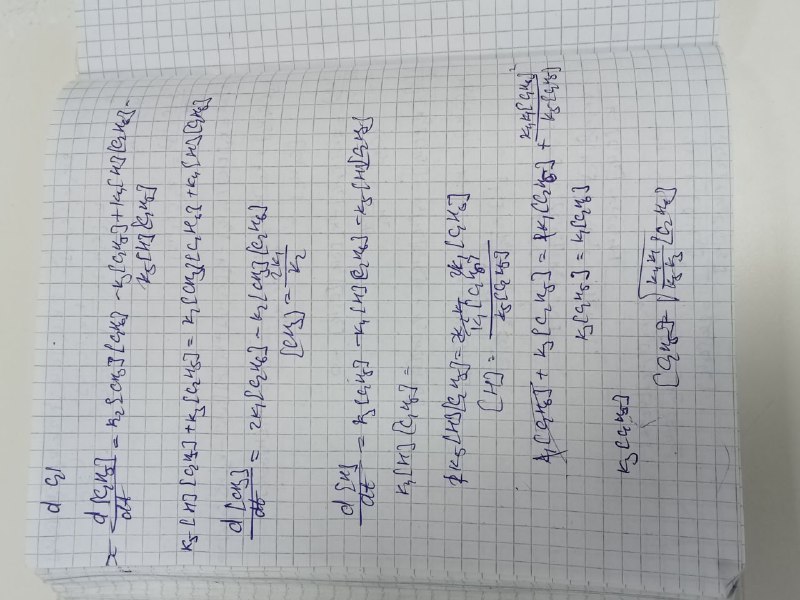 d C₂
d[C₂H₅]/dt = k₂[CH₃][C₂H₆] - k₃[C₂H₅] + k₄[H][C₂H₆] -
k₅[H][C₂H₅]
k₅[H][C₂H₅] + k₃[C₂H₅] = k₂[CH₃][C₂H₆] + k₄[H][C₂H₆]
d[CH₃]/dt = 2k₁[C₂H₆] - k₂[CH₃][C₂H₆]
[CH₃] = 2k₁/k₂
d[H]/dt = k₃[C₂H₅] - k₄[H][C₂H₆] - k₅[H][C₂H₅]
k₄[H][C₂H₆] =
2k₅[H][C₂H₅] = 2k₁[C₂H₆]
[H] = k₁[C₂H₆]/k₅[C₂H₅]
k₁[C₂H₆] + k₃[C₂H₅] = 2k₁[C₂H₆] + k₄k₁[C₂H₆]²/k₅[C₂H₅]
k₃[C₂H₅] = k₁[C₂H₆]
k₃[C₂H₅]
[C₂H₅] = √(k₄k₁/k₅k₃) [C₂H₆]